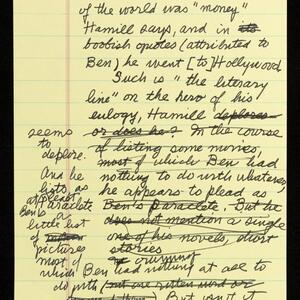 of the world was "money"
Hamill says, and in its
boobish quotes (attributed to
Ben) he went [to] Hollywood
Such is "the literary
line" on the hero of his
eulogy, Hamill deplores
or does he? In the course
of listing some movies,
most of which Ben had
nothing to do with whatever,
he appears to plead as
Ben's Paraclete. But he
does not mention a single
one of his novels, short
stories
seems
to
deplore.
And he
lists, as
Ben's Paraclete
a
little list
of
pictures
most of
which Ben had nothing at all to
do with
But isn't it